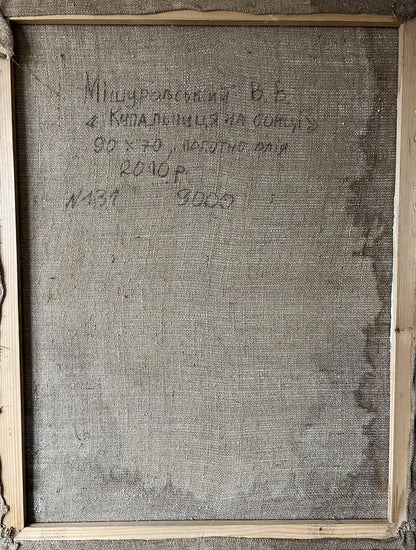 Мішуровський В. В.
"Купальниця на сонці"
90 х 70, полотно олія
2010 р.
N131 9000